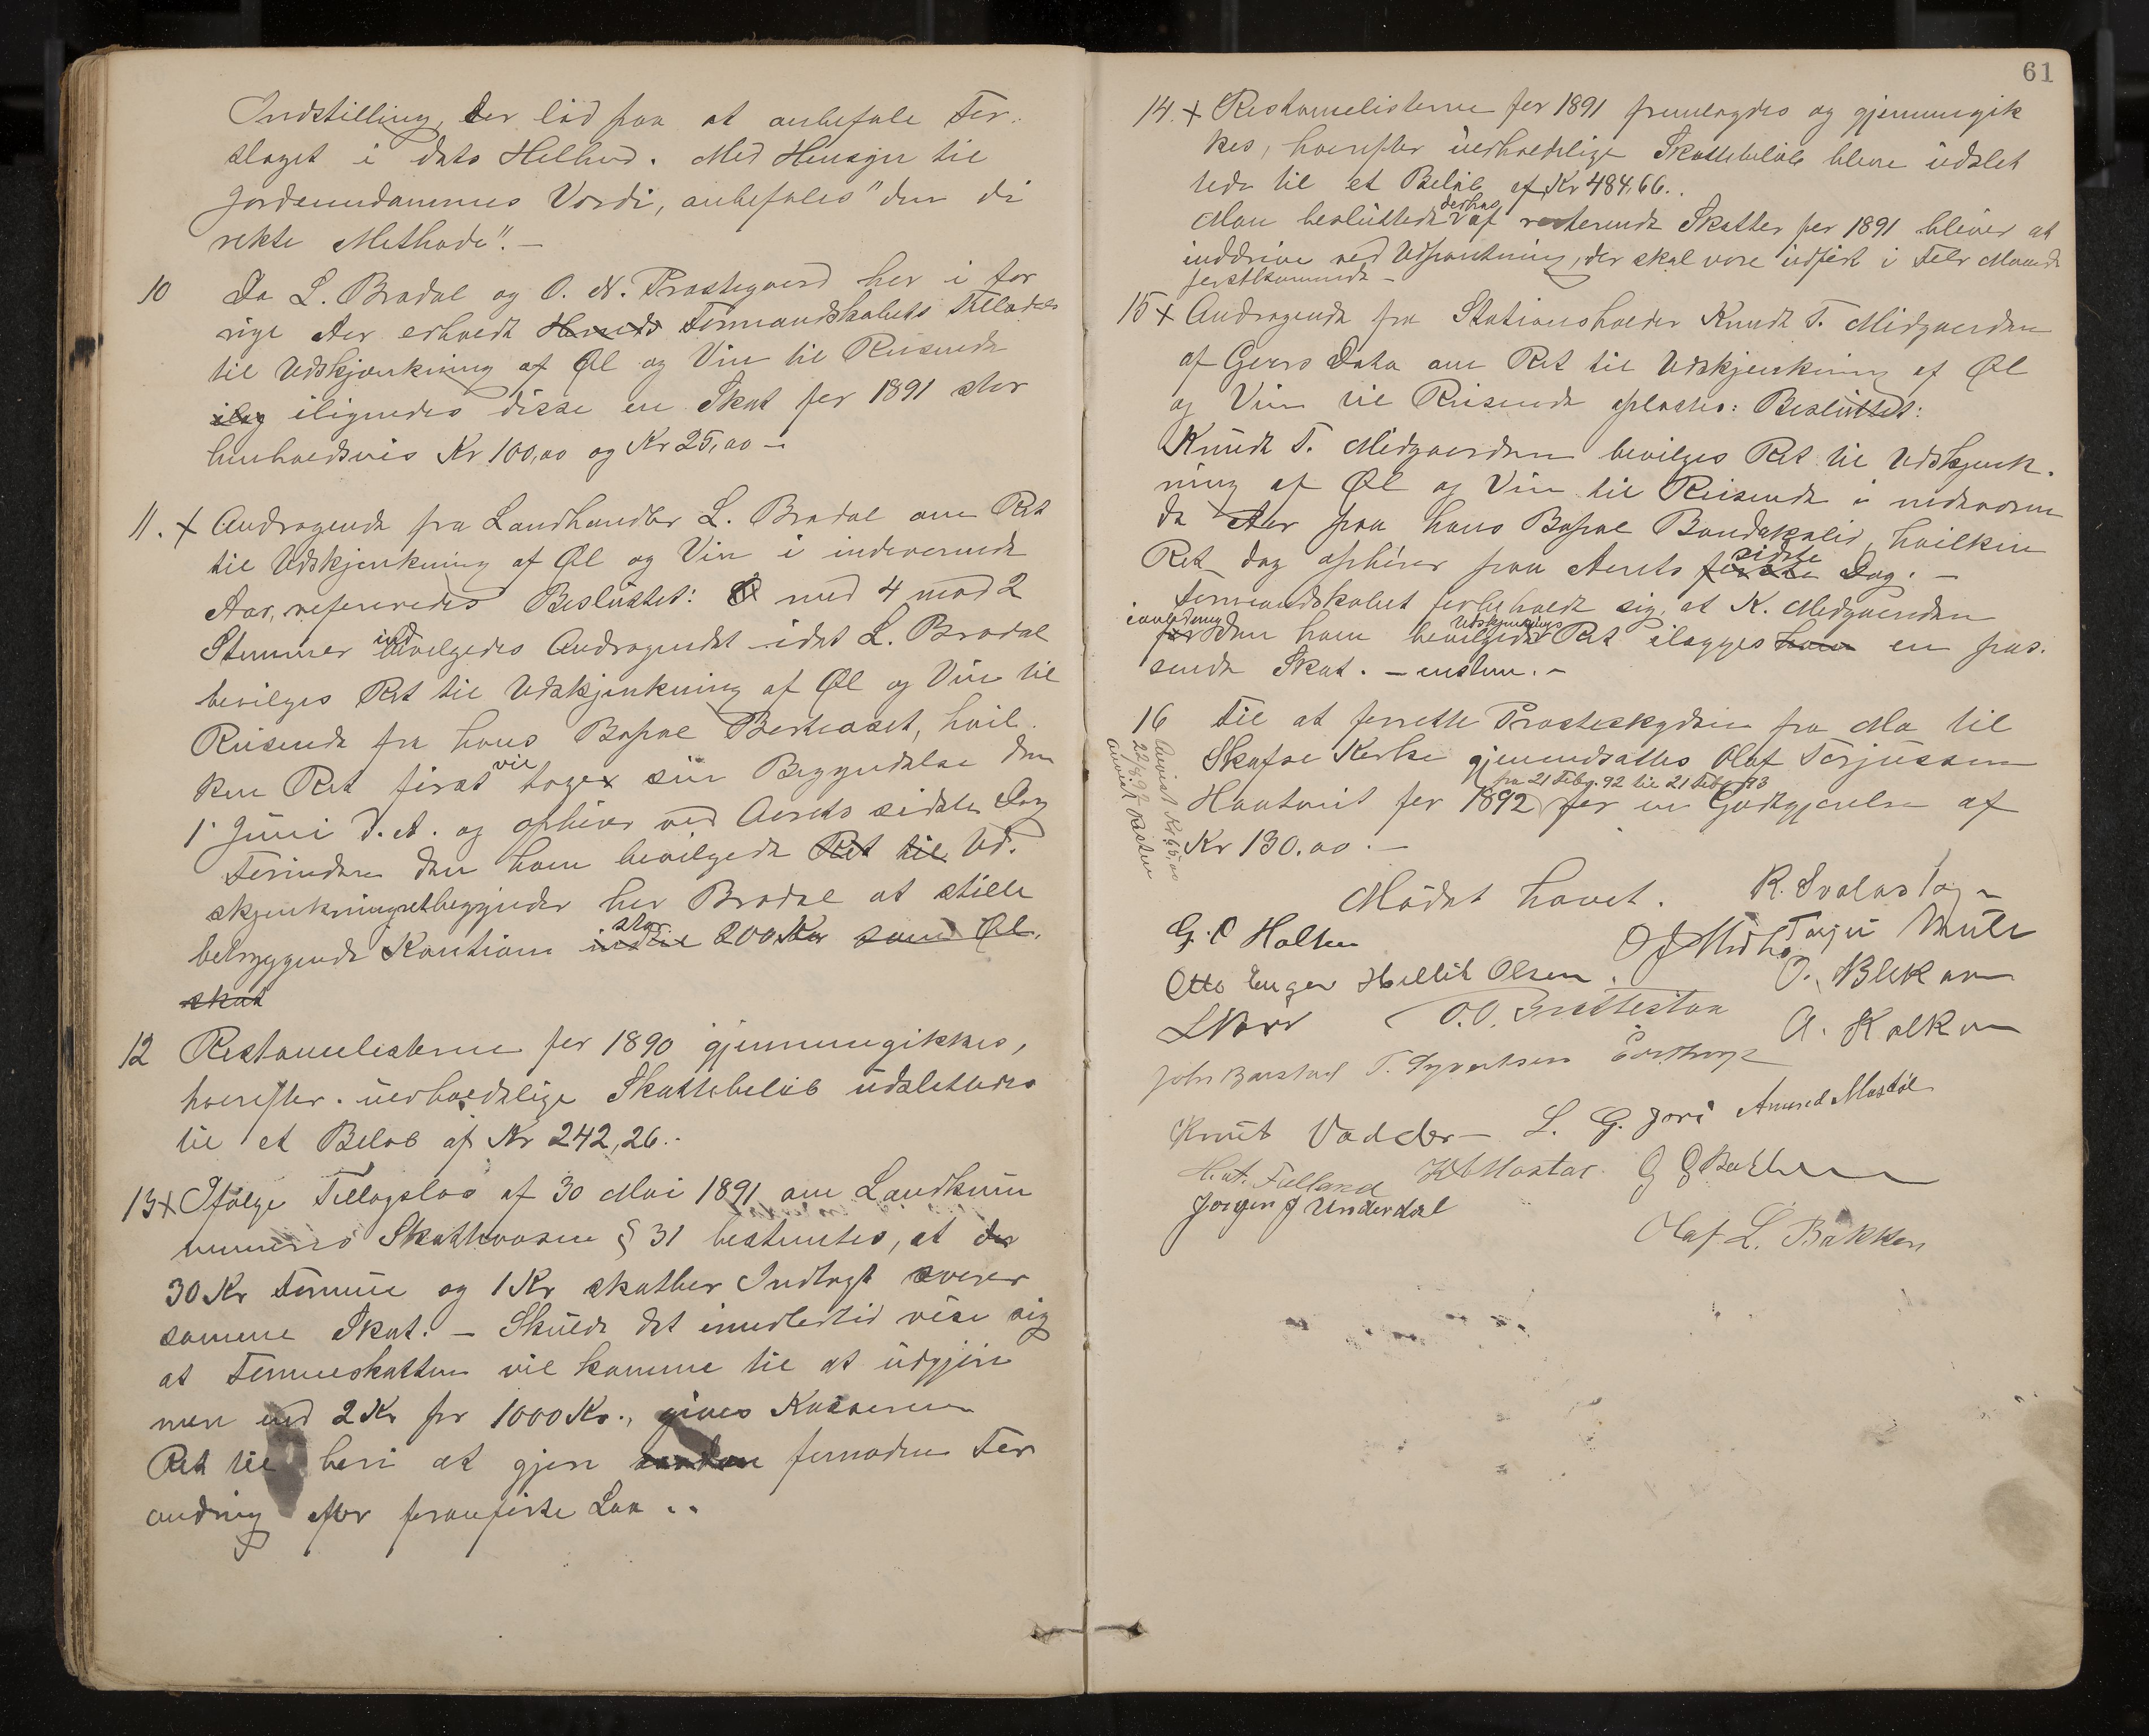 Indstilling, der lød paa at anbefale For-
slaget i dets Helhed. Med Hensyn til
Jordeiendommes Værdi, anbefales "den di
rekte Methode". —
10 Da L. Bradal og O. N. Præstegaard her i for
rige Aar erholdt Formandskabets Tilladelse
til Udskjænkning af Øl og Vin til Reisende
ilignedes disse en Skat for 1891 stor
henholdsvis Kr 100,00 og Kr 25,00 —
11. x Andragende fra Landhandler L. Bradal om Ret
til Udskjænkning af Øl og Vin i indeværende
Aar, refereredes Besluttet: med 4 mod 2
Stemmer indvilgedes Andragendet idet L. Bradal
bevilges Ret til Udskjænkning af Øl og Vin til
Reisende fra hans Bopæl, hvil
ken Ret først vil tage sin Begyndelse den
1 Juni d. A. og ophører ved Aarets sidste Dag
Forinden den ham bevilgede Ret til Ud-
skjænkningsret begynder har Bradal at stille
betryggende Kaution stor 200 Kr som Øl-
skat
12 Restancelisterne for 1890 gjennemgikkes,
hvorefter uerholdelige Skattebeløb udslettedes
til et Beløb af Kr 242,26.-
13 x Ifølge Tillægslov af 30 Mai 1891 om Landkom
munernes Skattevæsen § 31 bestemtes, at
30 Kr Formue og 1 Kr skatbar Indtægt svarer
samme Skat. — Skulde det imidlertid vise sig
at Formueskatten vil komme til at udgjøre
mere end 2 Kr pr 1000 Kr., gives Kassereren
Ret til heri at gjøre fornøden For
andring efter paanførte Lov ..
61
14. x Restancelisterne for 1891 fremlagdes og gjennemgik
kes, hvorefter uerholdelige Skattebeløb bleve udslet
tede til et Beløb af Kr 484,66..
Man besluttede derhos at resterende Skatter for 1891 bliver at
inddrive ved Udpantning, der skal være udført i Febr Maaned
førstkommende —
15 x Andragende fra Stationsholder Knudt T. Midgaarden
af Gaars Dato om Ret til Udskjenkning af Øl
og Vin til Reisende oplæstes: Besluttet:
Knudt T. Midgaarden bevilges Ret til Udskjenk-
ning af Øl og Vin til Reisende i indeværen
de Aar paa hans Bopæl Bandakslid, hvilken
Ret dog ophører paa Aarets første sidste Dag. —
Formandskabet forbeholdt sig, at K. Midgaarden
i anledning for den ham bevilgede Udskjenknings Ret ilægges ham en pas-
sende Skat. — enstem. —
16 Til at forrette Præsteskydsen fra Mo til
Skafse Kirke gjenansattes Olaf Torjussen
fra 21 Febr. 92 til 21 Febr 93
Haatveit for 1892 for en Godtgjørelse af
Kr 130.00. —
Anvist Kr 65,00
22/8 92
anvist Resten
Mødet hævet. R. Svalastog
G. O Holten Torju Mule
Otto Enger Hellik Olsen O. Blekom
O.O. Grøttestøa A. Kolkom
John Barstad T. Syvertsen
Knut Vadder L. G. Jore Amund Mostøl
H. A. Felland G G Bakken
Jorgen J Underdal
Olaf L. Bakken